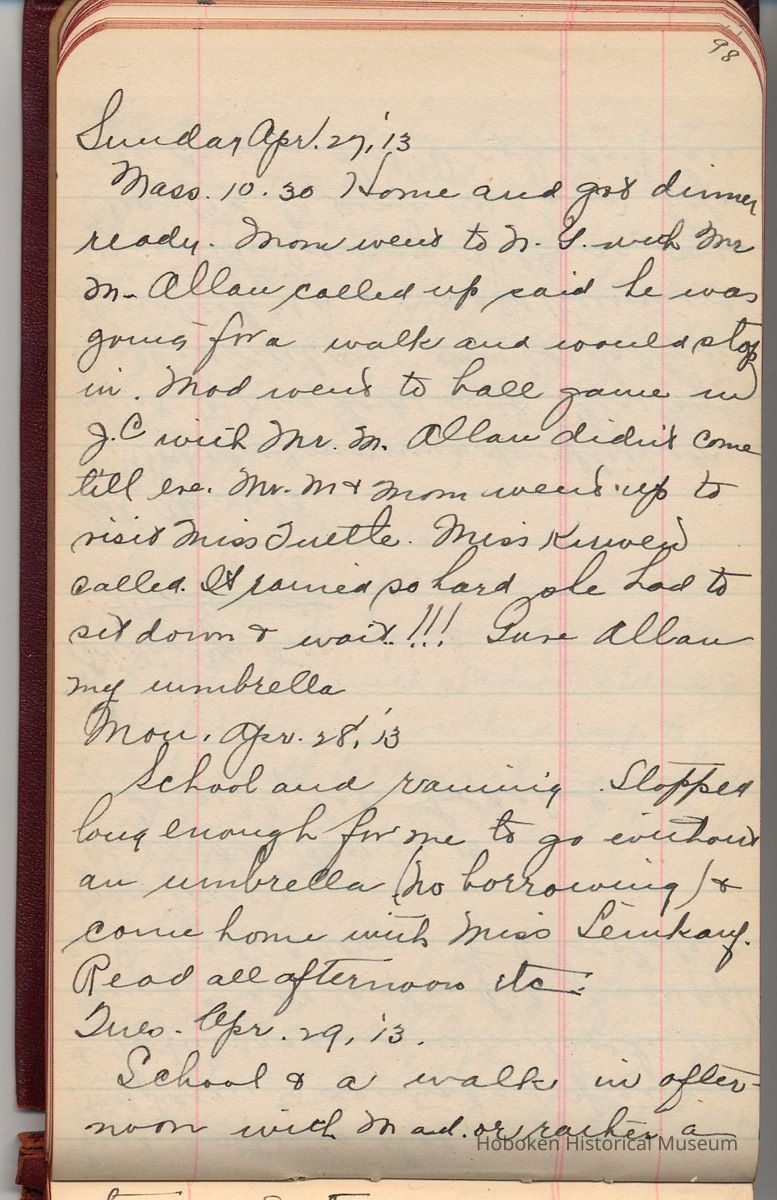 98
Sunday Apr. 27, '13
Mass. 10.30 Home and got dinner
ready. Mom went to N. Y. with Mr
M. Allan called up said he was
going for a walk and would stop
in. Mad went to ball game in
J.C with Mr. M. Allan didn't come
till eve. Mr. M & Mom went up to
visit Miss Tuttle. Miss
called. It rained so hard she had to
sit down & wait.!!! Gave Allan
my umbrella
Mon. Apr. 28, '13
School and raining. Stopped
long enough for me to go without
an umbrella (no borrowing) &
come home with Miss
Read all afternoon etc.
Tues. Apr. 29, '13.
School & a walk in after-
noon with Mad. or rather a
Hoboken Historical Museum